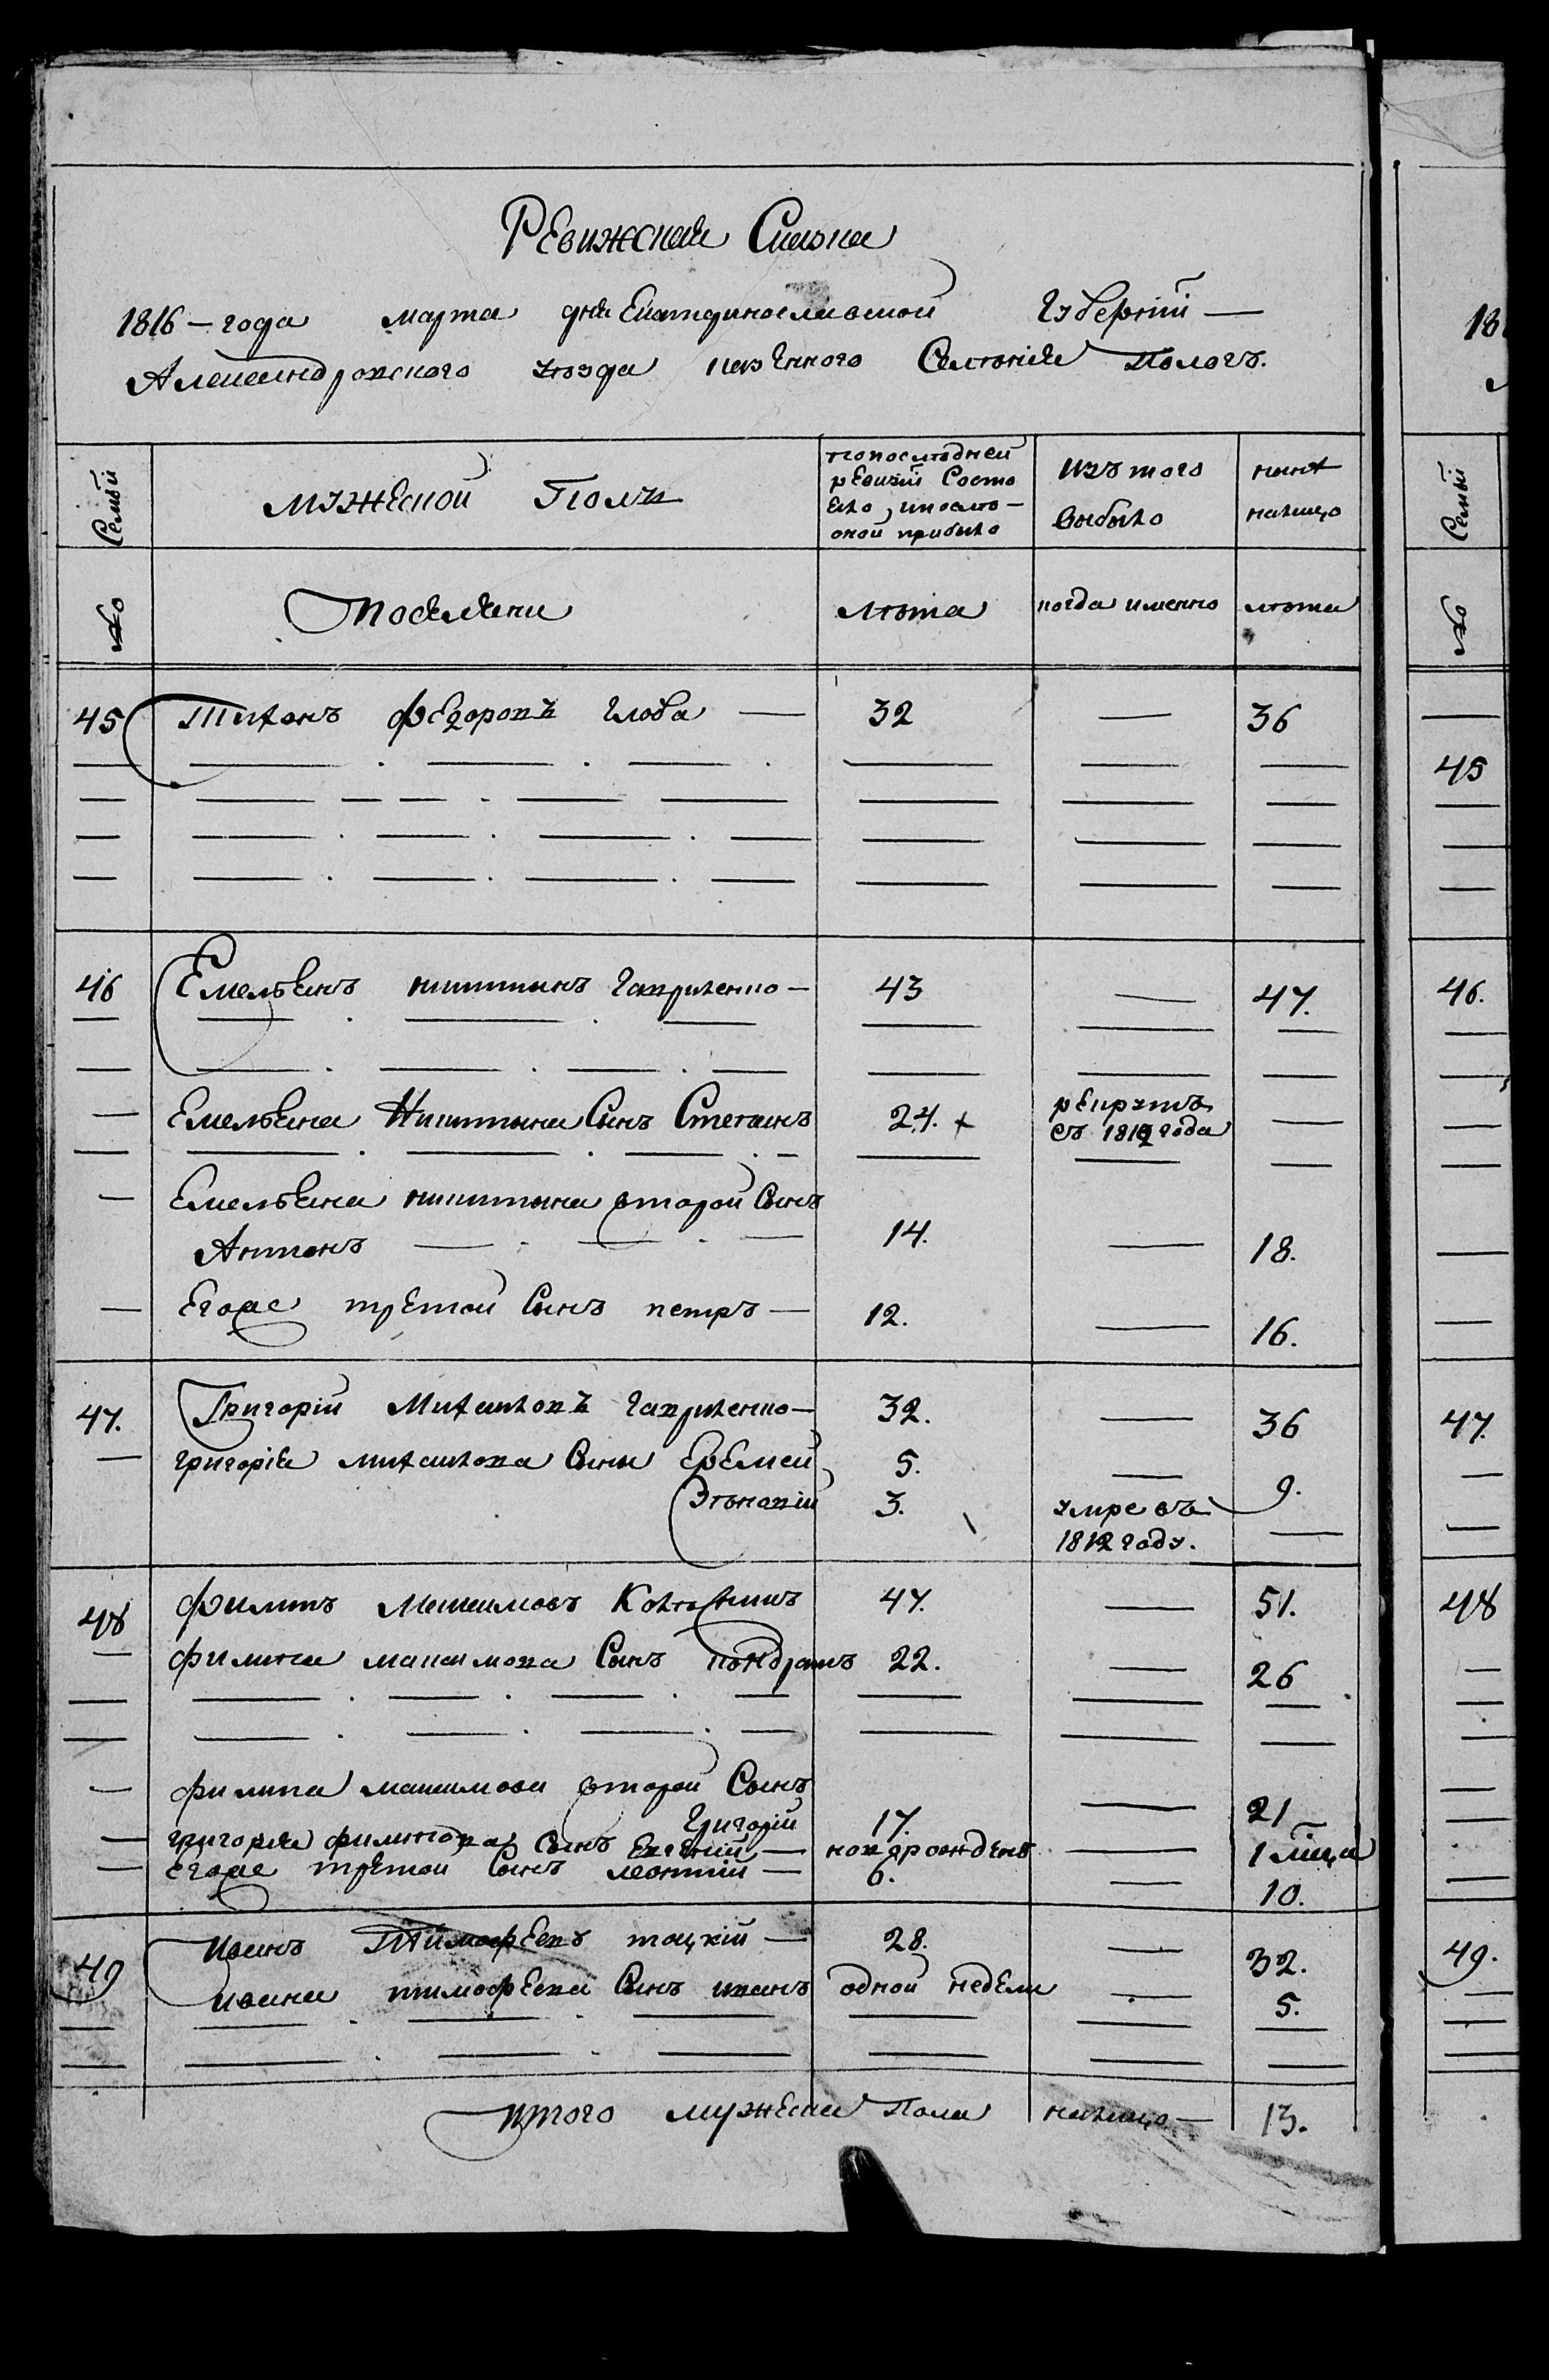 Ревижская Сказка
1816 – года марта дня Екатеринославской Губернии —
Александровского уезда казенного Селения Пологъ.
Семьи
мужеской Полъ
попоследней ревизии Состояло, ипосле оной прибыло
изъ того выбыло
ныне налицо
№
Поселяни
лѣта
когда именно
лѣта
45 Титонъ Федоровъ глоба — 32 — 36
46 Емельянъ никитинъ гавриленко — 43 — 47.
— Емельяна Никитина Сынъ Степанъ 24. рекрутъ —
съ 1812 года
— Емельяна никитина второй Сынъ
Антонъ 14. — 18.
— Егоже третой Сынъ петръ — 12. — 16.
47. Григорий Михайловъ гавриленко — 32. — 36
— григория михайлова Сыны Еремей 5. — 9.
Зѣновий 3. умре въ —
1812 году.
48 филипъ Максимовъ 47. — 51.
— филипа максимова Сынъ кондратъ 22. — 26
— филипа максимова второй Сынъ
Григорий 17. — 21
— григория филипова Сынъ Евгений — новорожденъ — 1
— Егоже третой Сынъ леонтий — 6. — 10.
49 иванъ Тимофеевъ тоцкий — 28. — 32.
ивана тимофеева Сынъ иванъ одной недели — 5.
итого мужеска Пола налицо — 13.
18
Семьи
№
45
46.
47.
48
49.